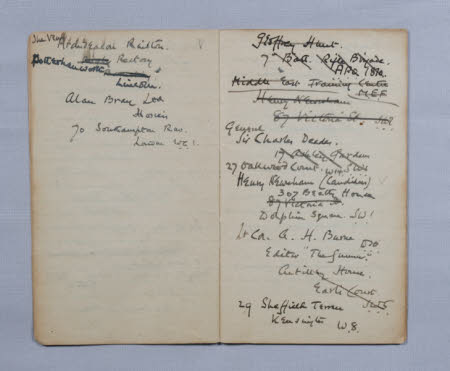 The Very
Archdeacon Rhilton.
Rectory
Lincoln.
Alan Bray Ltd
70 Southampton Row.
London WC1.
Geoffrey Hunt.
7th Batt. Rifle Brigade.
APO 7810.
Middle East Training Centre
MEF
Henry Newnham
87 Victoria St. SW1
General
Sir Charles Deedes.
Ashley Gardens
27 Oakwood Court W14 SW1
Henry Newnham (Candidus)
307 Beatty House
87 Victoria St.
Dolphin Square SW1
Lt Col. A. H. Burne DSO
Editor "The Gunner".
Artillery House.
Earls Court
SW5.
29 Sheffield Terrace
Kensington W.8.